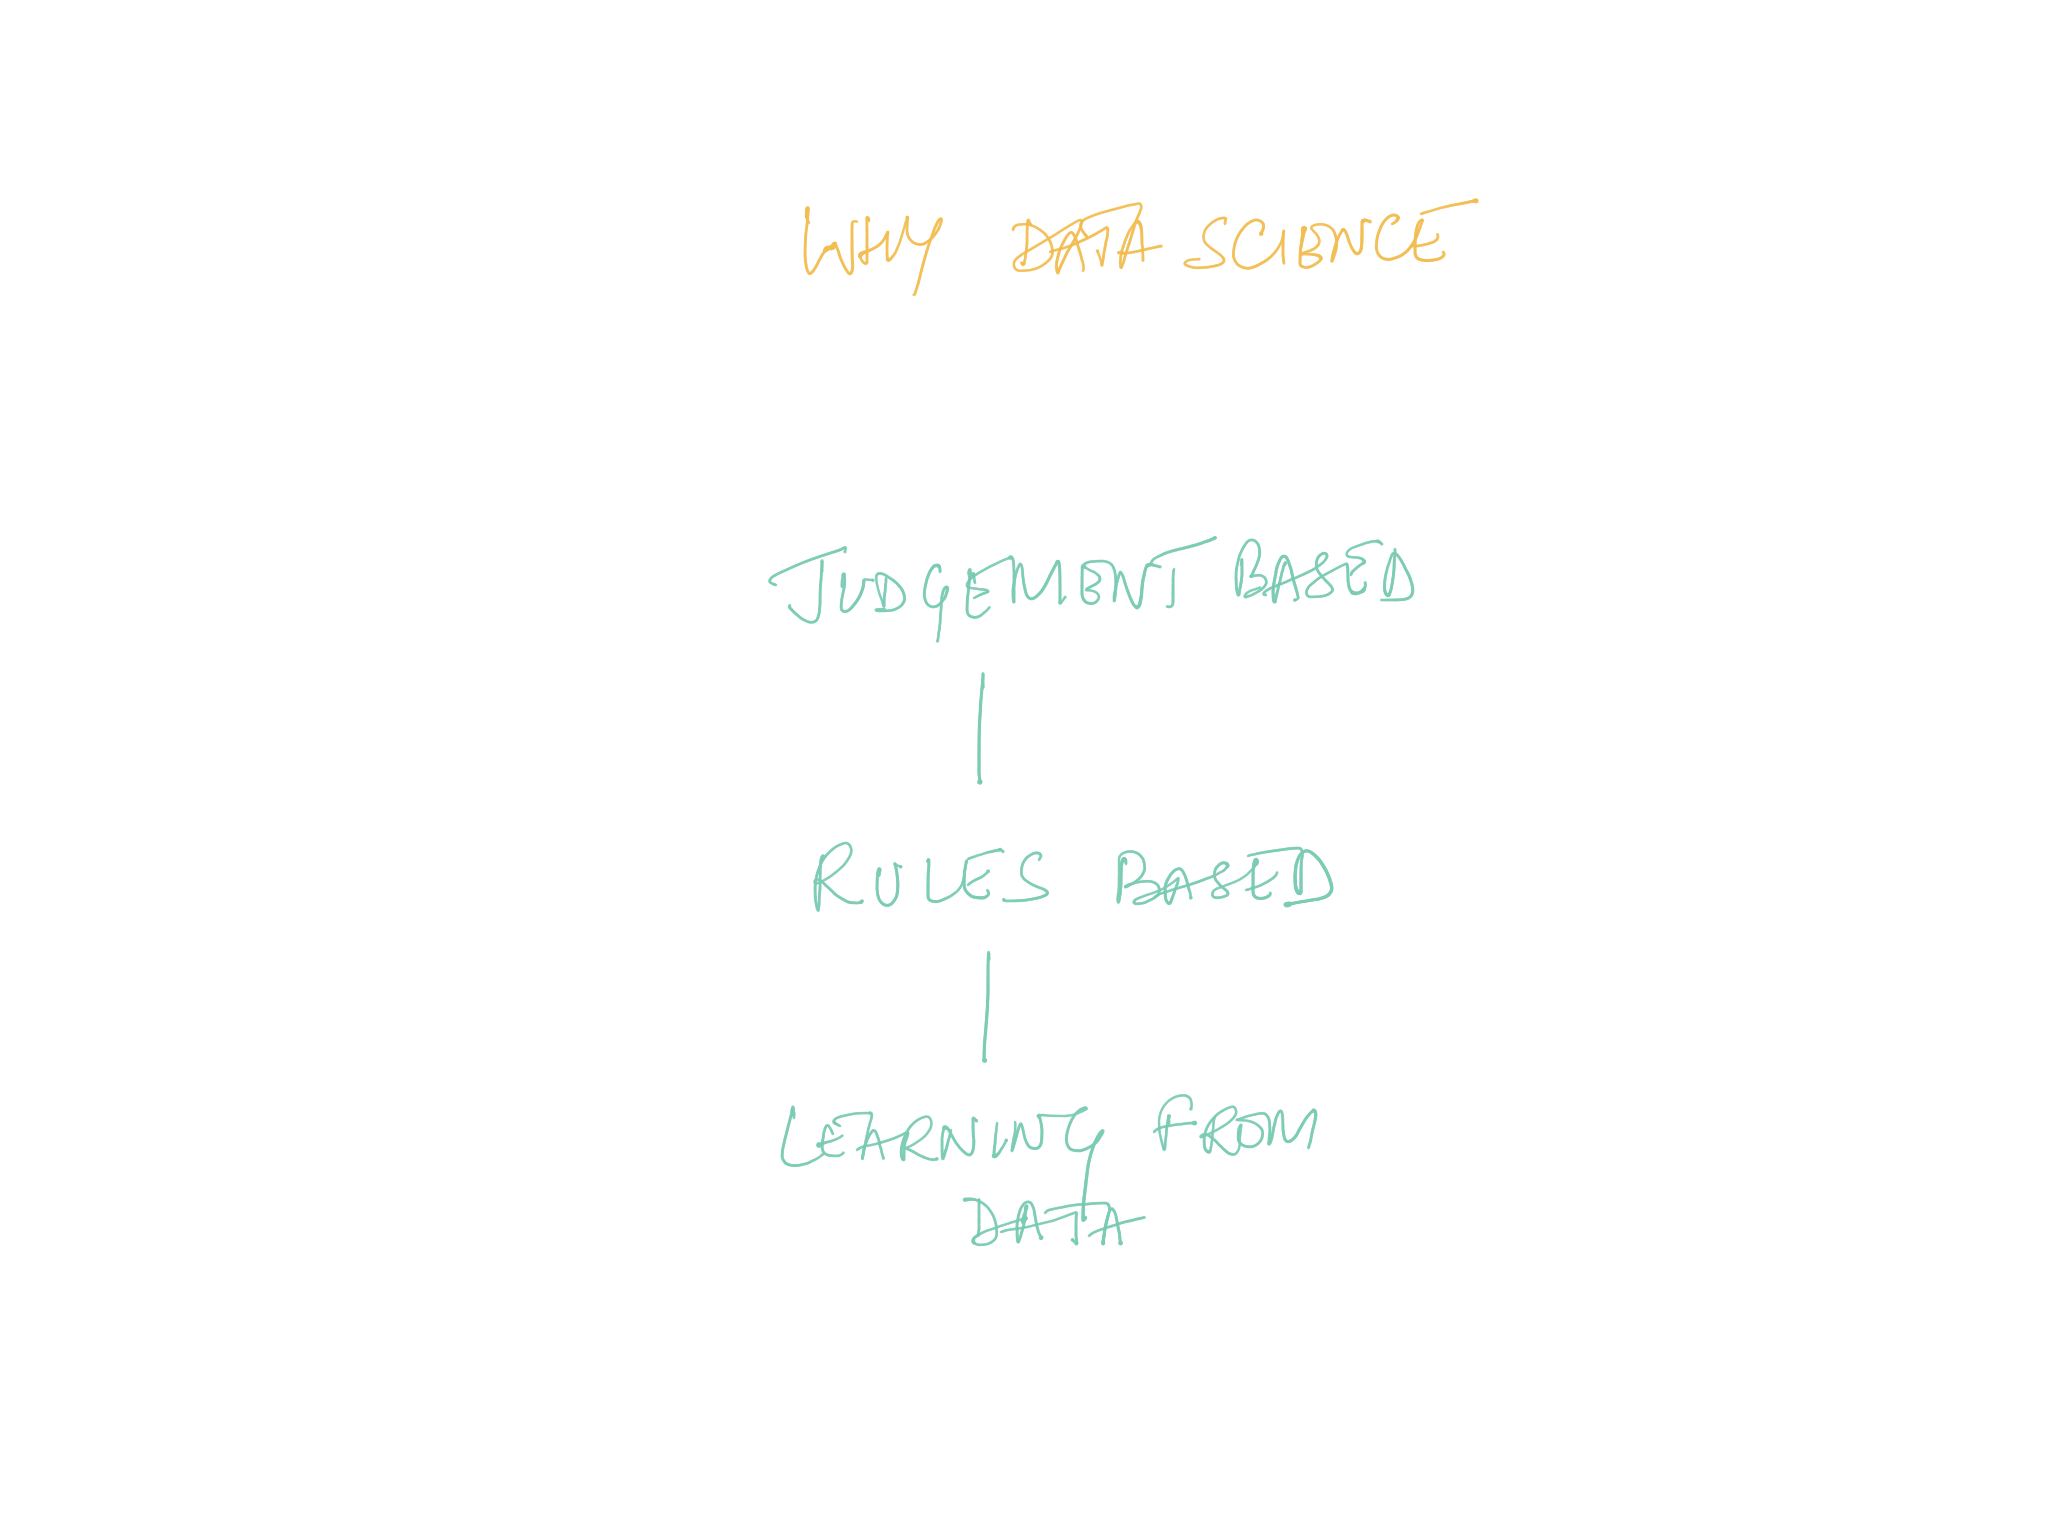 WHY DATA SCIENCE
JUDGEMENT BASED
RULES BASED
LEARNING FROM
DATA